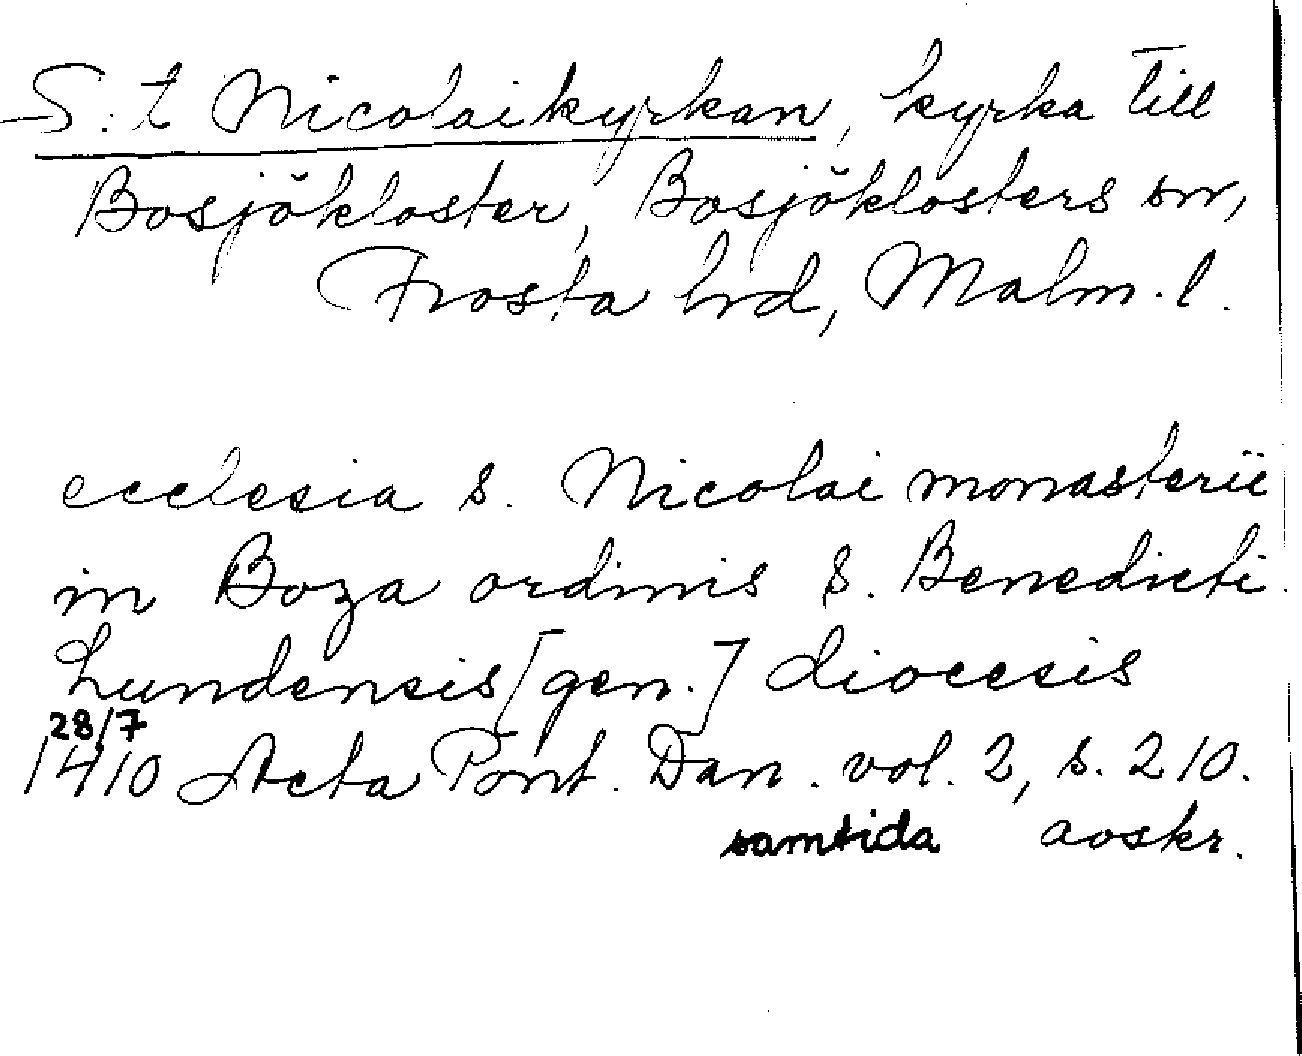 S:t Nicolaikyrkan, kyrka till
Bosjökloster, Bosjöklosters sn,
Frosta hrd, Malm. l.
ecclesia s. Nicolai monasterii
in Boza ordinis S. Benedicti
Lundensis [gen.] diocesis
28/7
1410 Acta Pont. Dan. vol. 2, s. 210.
samtida avskr.